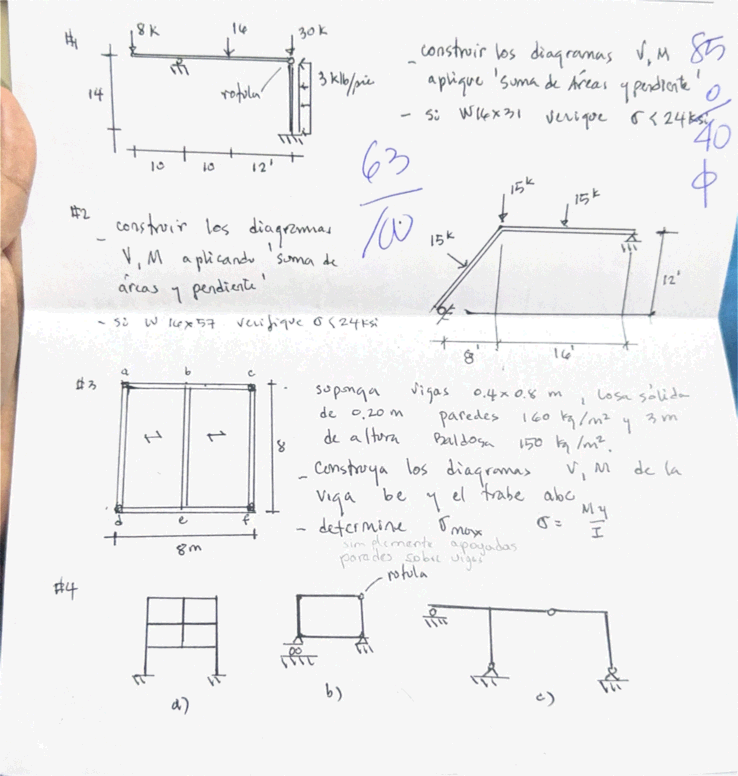 #1
8K
16
30K
rotula
3 klb/pie
14
10 10 12'
- construir los diagramas V, M
aplique 'suma de Áreas y pendiente'
- si W16x31 verique σ < 24 ksi
85
0
40
φ
63
/100
#2
- construir los diagramas
V, M aplicando 'suma de
áreas y pendiente'
- si W 16x57 verifique σ < 24 ksi
15K
15K
15K
12'
8' 16'
#3
a b c
d e f
8
8m
suponga vigas 0.4 x 0.8 m, losa sólida
de 0.20 m paredes 160 kg/m² y 3 m
de altura Baldosa 150 kg/m².
- Construya los diagramas V, M de la
viga be y el trabe abc
- determine σmax σ = My/I
simplemente apoyadas
paredes sobre vigas
#4
rotula
a)
b)
c)